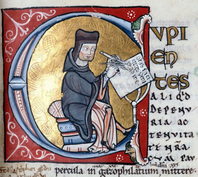 CUPI
EN
TES
ALIQD
DEPENV
RIA AC
TENVITA
TE NRA
CVM PAV
percula in gazophilatium mittere.